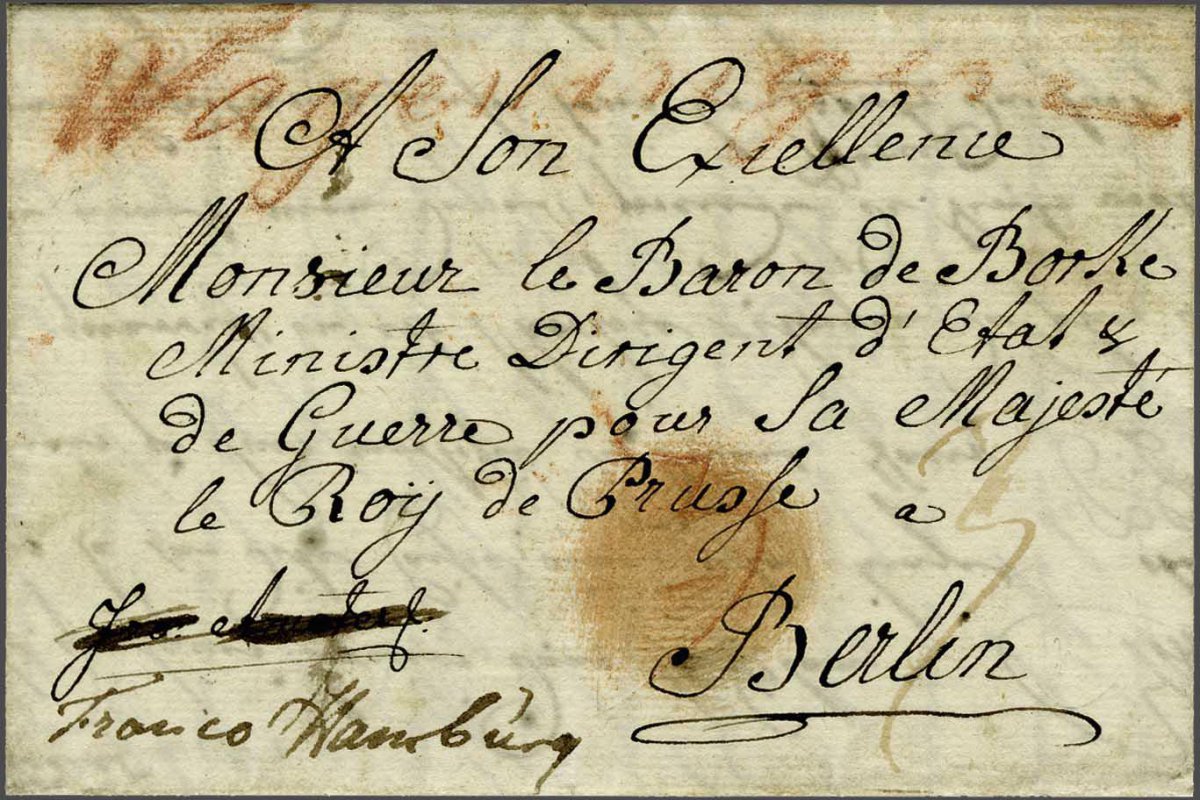 Wageningen
A Son Exellence
Monsieur le Baron de Borke
Ministre Dirigent d'Etat &
de Guerre pour Sa Majesté
le Roÿ de Prusse a
Berlin
Franco Hambürg
3